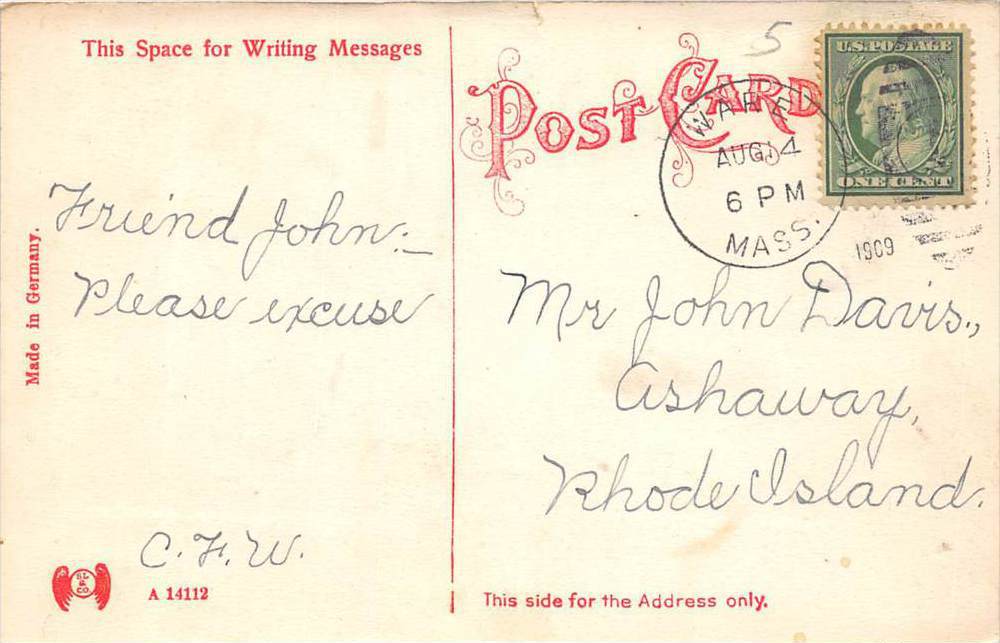 This Space for Writing Messages
5
POST CARD
U.S. POSTAGE
ONE CENT
WARE
AUG 14
6 PM
MASS.
1909
Made in Germany.
Friend John:—
Please excuse
C. F. W.
Mr John Davis.,
Ashaway,
Rhode Island.
SL & CO.
A 14112
This side for the Address only.